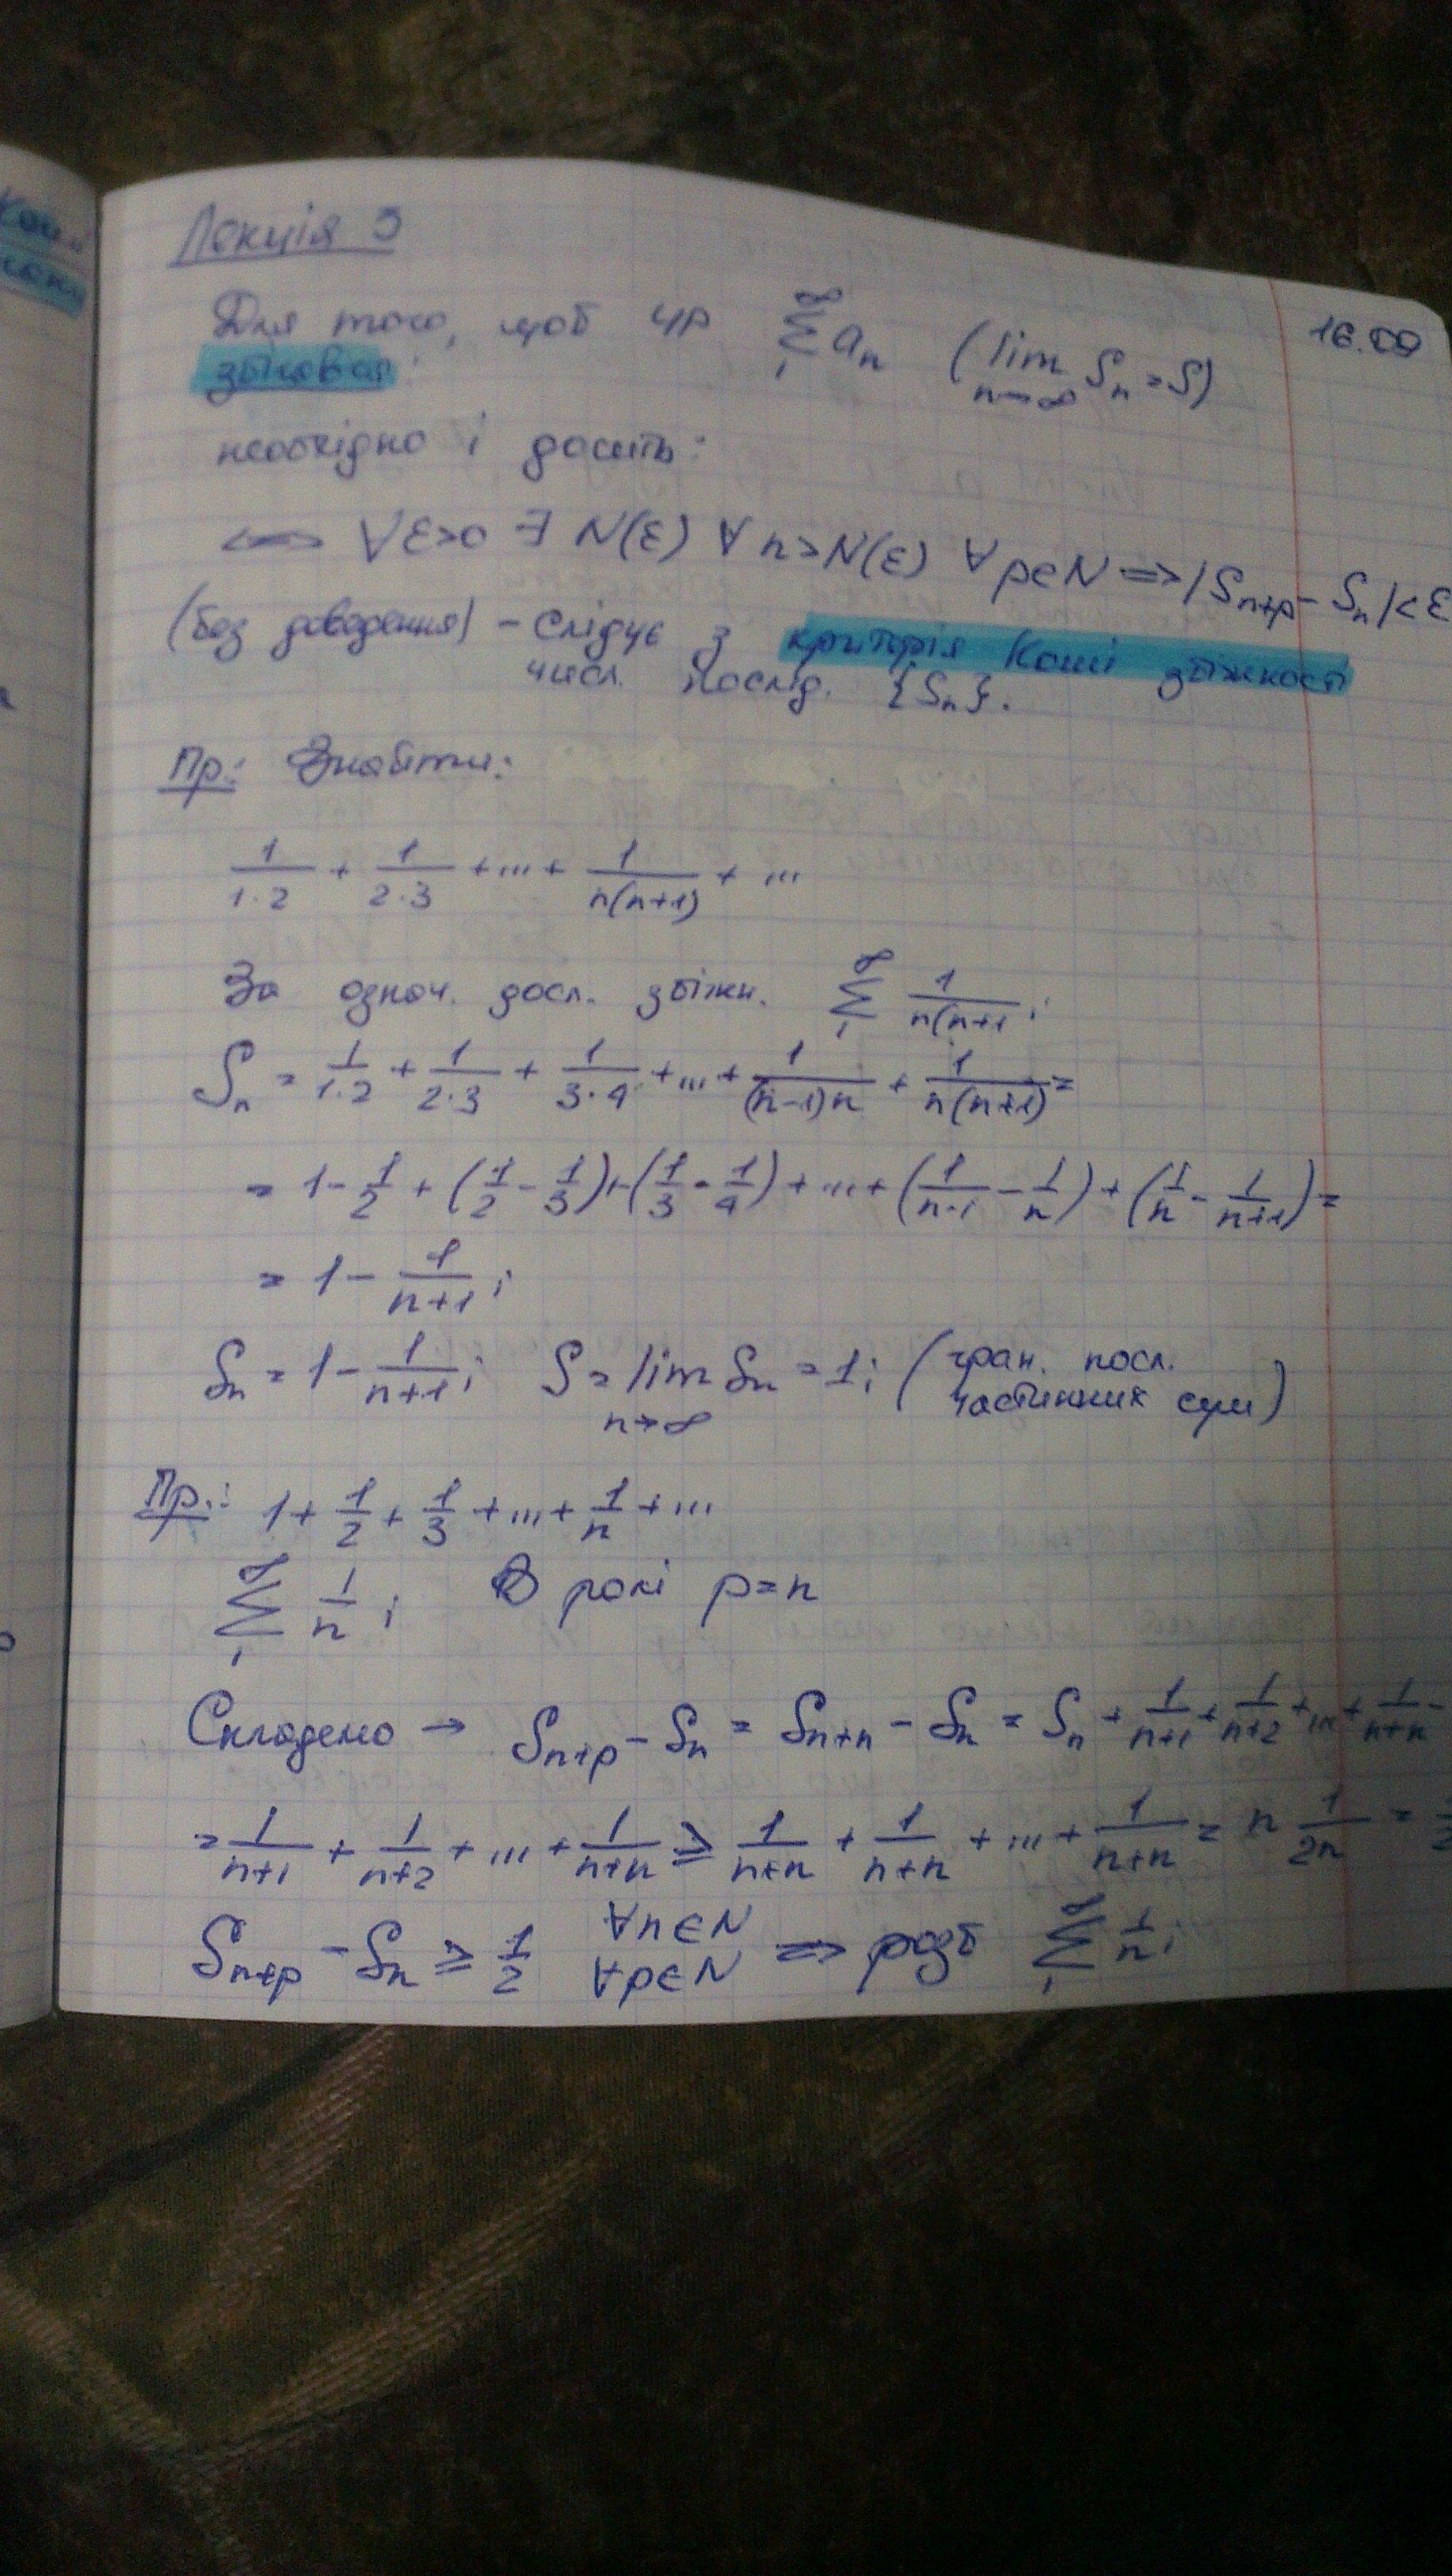 Лекція 3
16.09
Для того, щоб чр ∞ Σ 1 aₙ (lim n→∞ Sₙ = S)
збігався:
необхідно і досить:
<=> ∀ε>0 ∃ N(ε) ∀n>N(ε) ∀p∈N => |Sₙ₊ₚ - Sₙ|<ε
(без доведення) - Слідує з критерія Коші збіжності
числ. послід. {Sₙ}.
Пр.: Знайти:
1/(1·2) + 1/(2·3) +...+ 1/(n(n+1)) + ...
За означ. досл. збіжн. ∞ Σ 1 1/(n(n+1 ;
Sₙ = 1/(1·2) + 1/(2·3) + 1/(3·4) +...+ 1/((n-1)n) + 1/(n(n+1)) =
= 1 - 1/2 + (1/2 - 1/3) + (1/3 - 1/4) + ... + (1/(n-1) - 1/n) + (1/n - 1/(n+1)) =
= 1 - 1/(n+1) ;
Sₙ = 1 - 1/(n+1) ; S = lim n→∞ Sₙ = 1; (гран. посл.
частинних сум)
Пр.: 1 + 1/2 + 1/3 + ... + 1/n + ...
∞ Σ 1 1/n ; В ролі p=n
Складемо → Sₙ₊ₚ - Sₙ = Sₙ₊ₙ - Sₙ = Sₙ + 1/(n+1) + 1/(n+2) + ... + 1/(n+n) -
= 1/(n+1) + 1/(n+2) + ... + 1/(n+n) ≥ 1/(n+n) + 1/(n+n) + ... + 1/(n+n) = n 1/(2n) =
Sₙ₊ₚ - Sₙ ≥ 1/2 ∀n∈N ∀p∈N => розб ∞ Σ 1 1/n ;